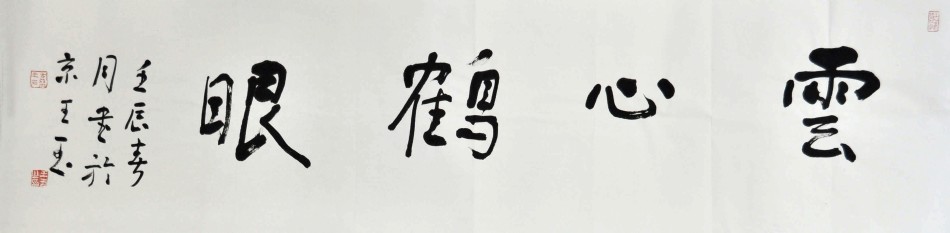 雲心鶴眼
壬辰春
月書於
京王玉